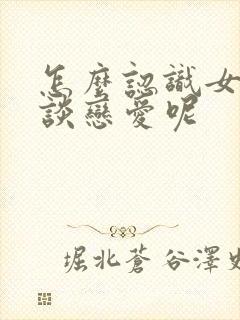 怎麼認識女
談戀愛呢
堀北蒼谷澤